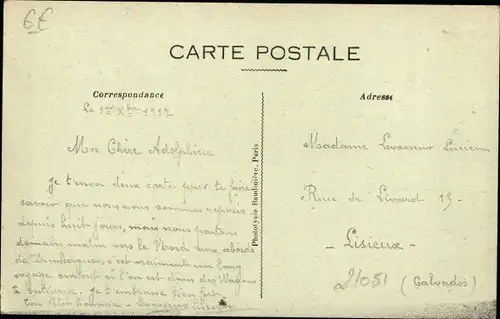 6€
CARTE POSTALE
Correspondance
Le 1er Xbre 1917
Ma Chère Adolphine
Je t'envoi deux cartes pour te faire
savoir que nous nous sommes reposés
depuis huit jours, mais nous partons
demain matin vers le Nord aux abords
de Dunkerque, c'est vraiment un long
voyage surtout si l'on est dans des Wagons
à bestiaux, je t'embrasse bien fort
Ton
Levasseur Lucien
Photolypie Baudinière, Paris
Adresse
Madame Levasseur Lucien
Rue de Livarot 15
- Lisieux -
21051 (Calvados)